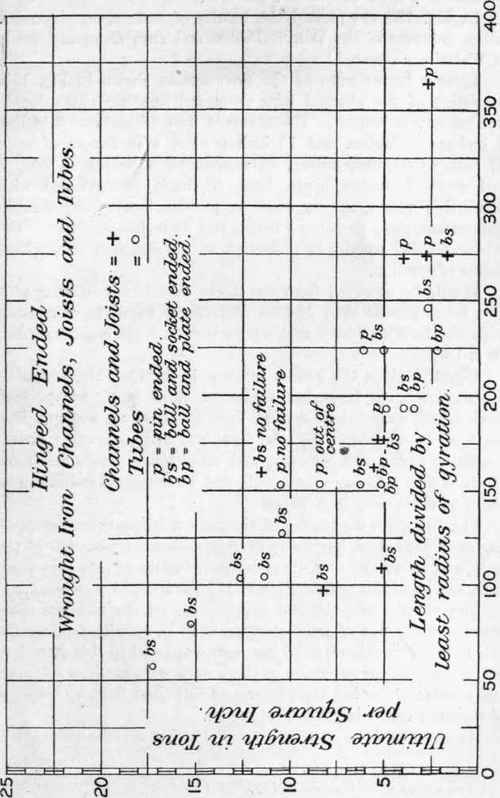 Hinged Ended.
Wrought Iron Channels, Joists and Tubes.
Channels and Joists = +
Tubes = o
p = pin ended.
bs = ball and socket ended.
bp = ball and plate ended.
Ultimate Strength in Tons
per Square Inch.
25
20
15
10
5
0
50
100
150
200
250
300
350
400
Length divided by
least radius of gyration.
bs
bs
bs
bs
bs
bs
bs no failure
p. no failure
p. out of
centre
bs
bs
bp
bp
bs
p
p
bs
bs
bp
bp
bs
p
p
bs
p